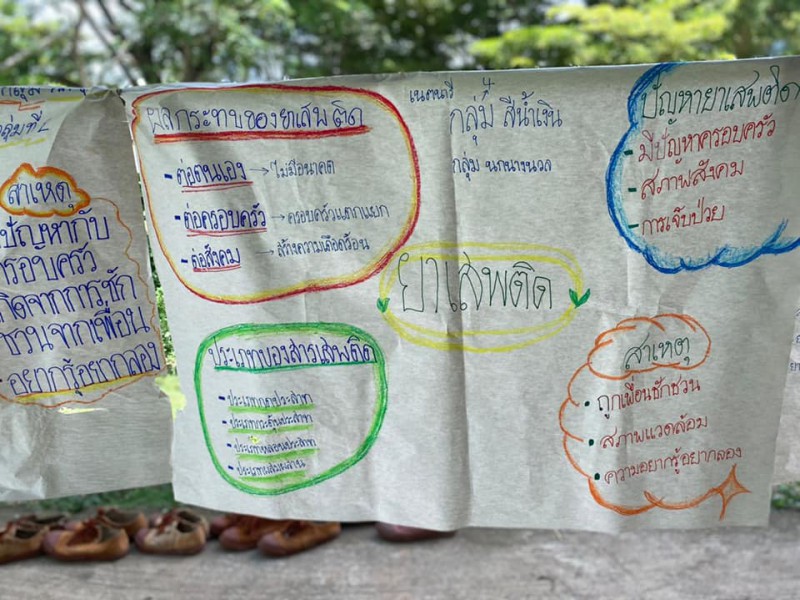 สาเหตุ
ปัญหากับ
ครอบครัว
เกิดจากการชัก
ชวนจากเพื่อน
- อยากรู้อยากลอง
ผลกระทบของยาเสพติด
- ต่อตนเอง → ไม่มีอนาคต
- ต่อครอบครัว → ครอบครัวแตกแยก
- ต่อสังคม → สร้างความเดือดร้อน
กลุ่ม สีน้ำเงิน
กลุ่ม นกนางนวล
ยาเสพติด
ปัญหายาเสพติด
- มีปัญหาครอบครัว
- สภาพสังคม
- การเจ็บป่วย
ประเภทของสารเสพติด
- ประเภทกดประสาท
- ประเภทกระตุ้นประสาท
- ประเภทหลอนประสาท
- ประเภทผสมผสาน
สาเหตุ
• ถูกเพื่อนชักชวน
• สภาพแวดล้อม
• ความอยากรู้อยากลอง